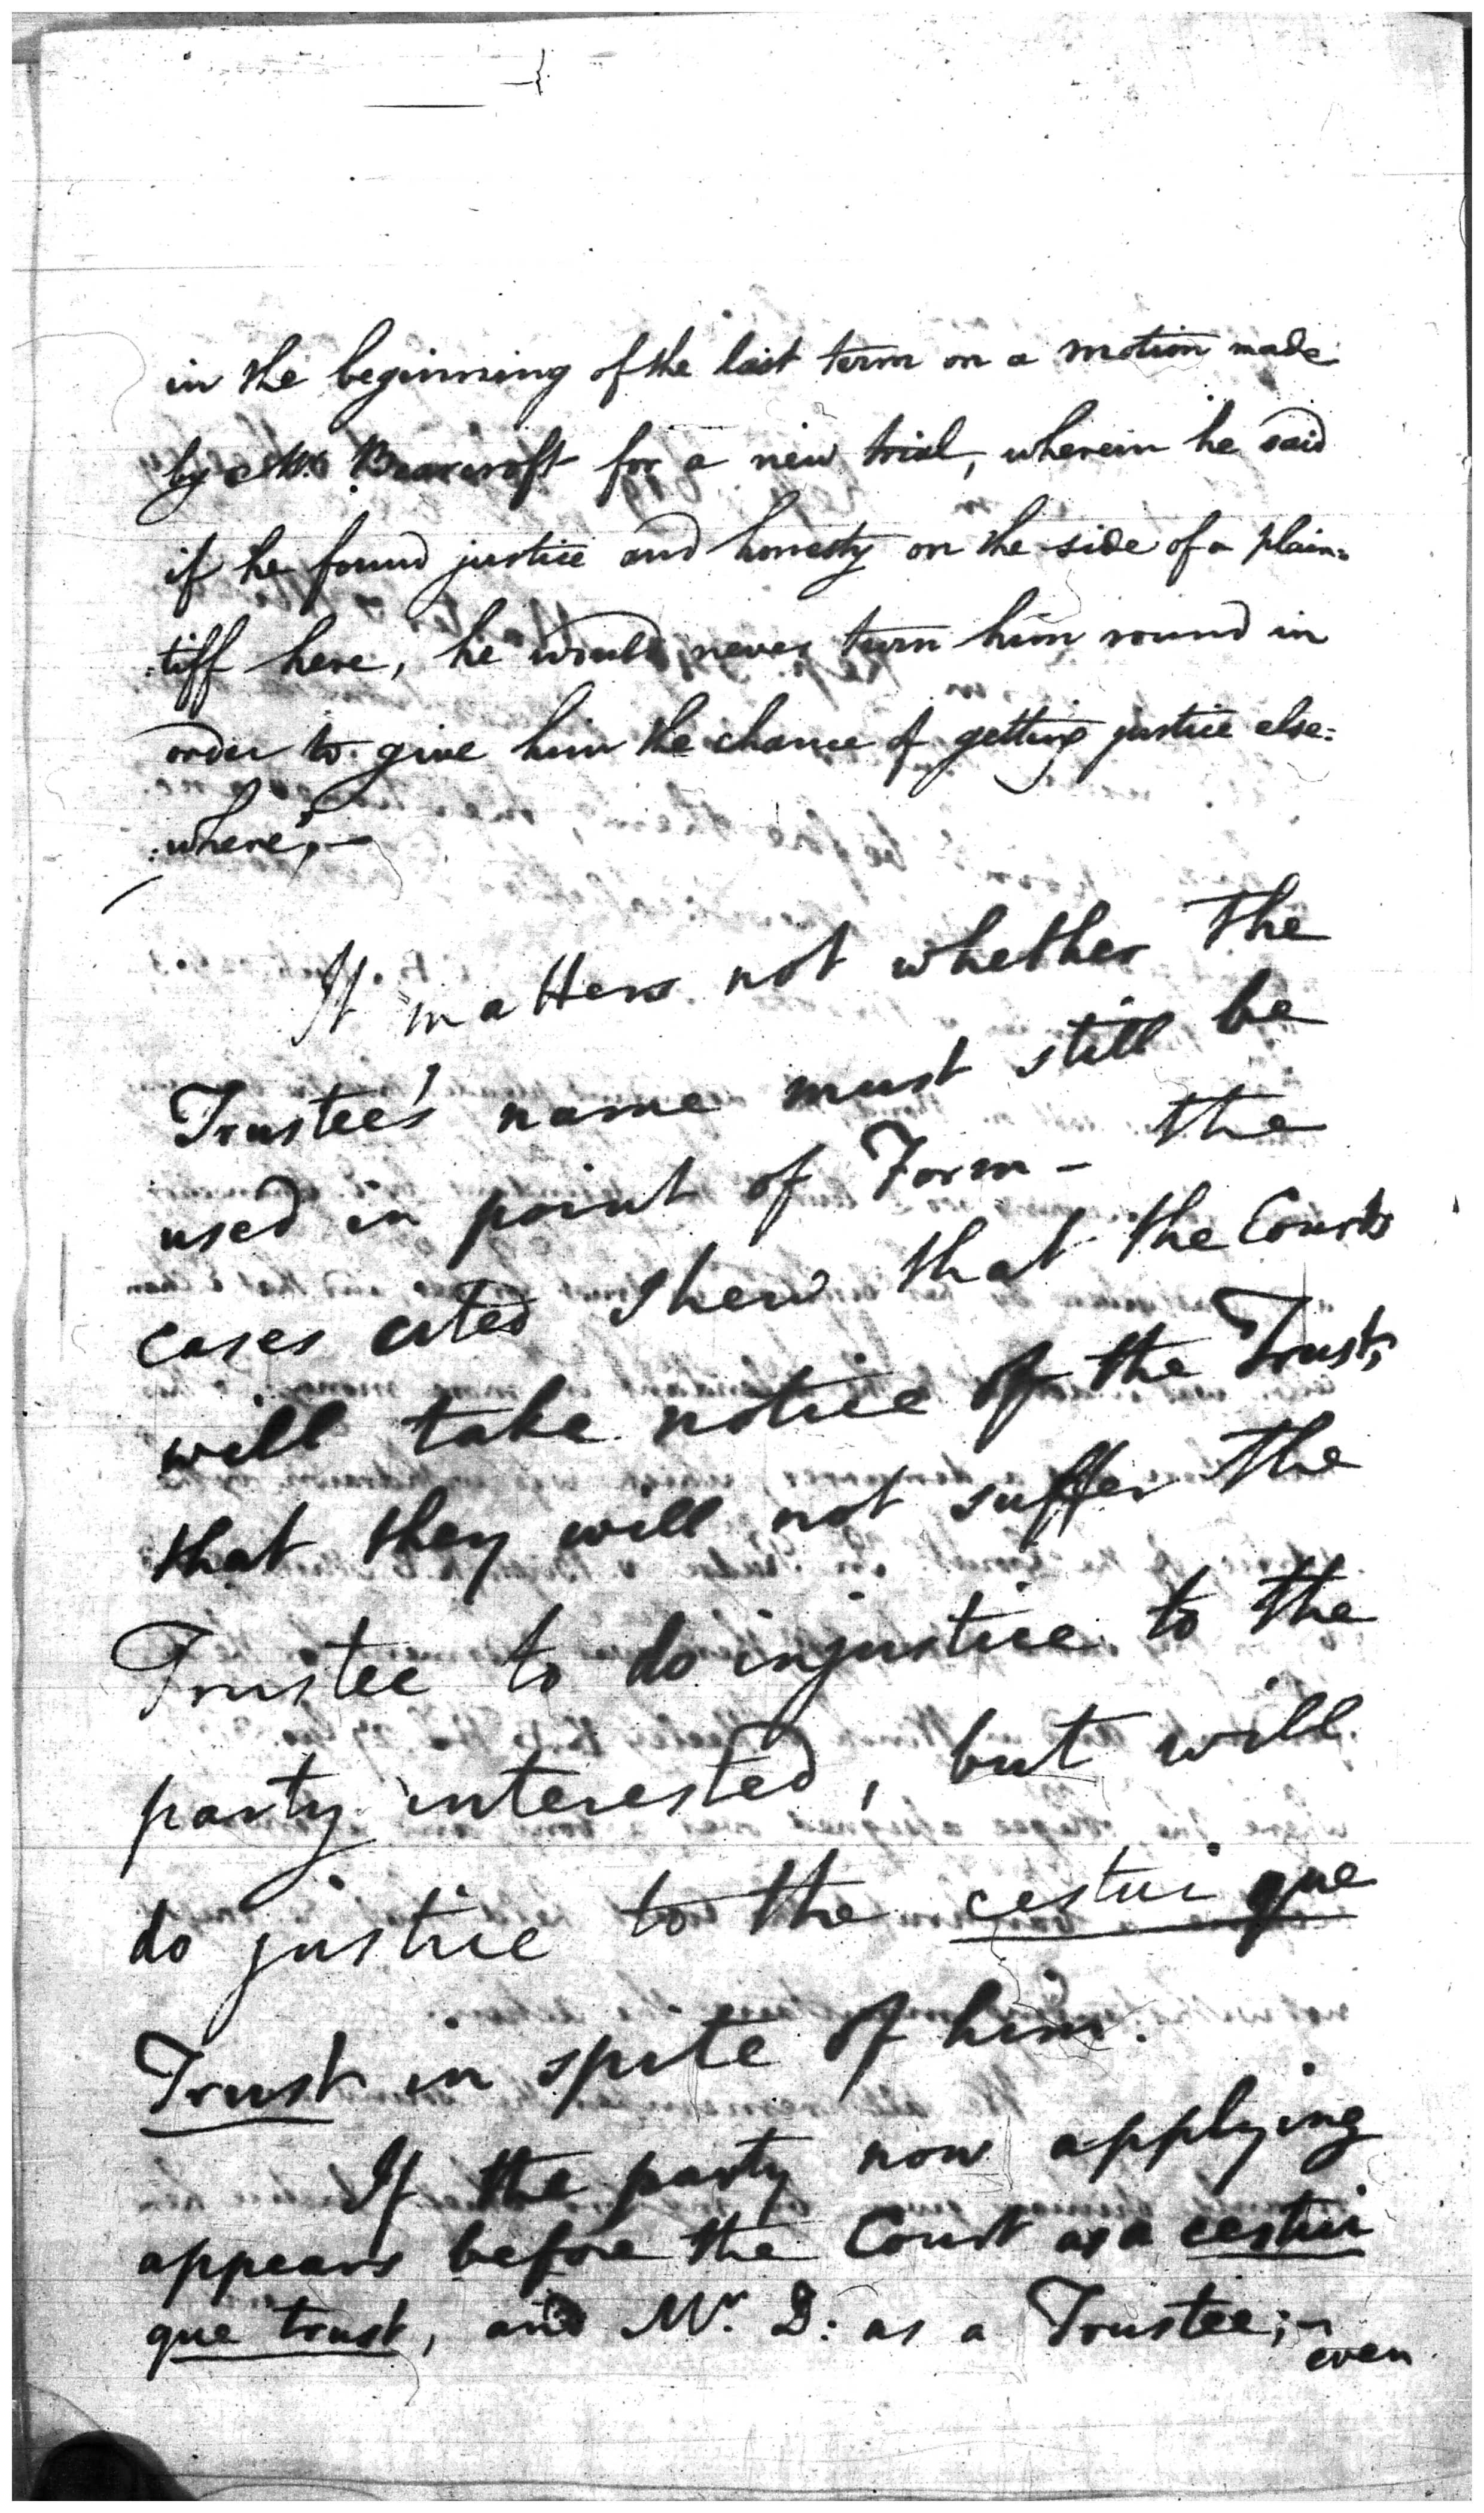 in the beginning of the last term on a motion made
by Mr. Bearcroft for a new trial, wherein he said
if he found justice and honesty on the side of a plain=
:tiff here, he would never turn him round in
order to give him the chance of getting justice else=
:where",—
It matters not whether the
Trustee's name must still be
used in point of Form – the
cases cited shew that the Courts
will take notice of the Trust,
that they will not suffer the
Trustee to do injustice to the
party interested, but will
do justice to the cestui que
Trust in spite of him.
If the party now applying
appears before the Court as a cestui
que trust, and Mr. D: as a Trustee;–
even